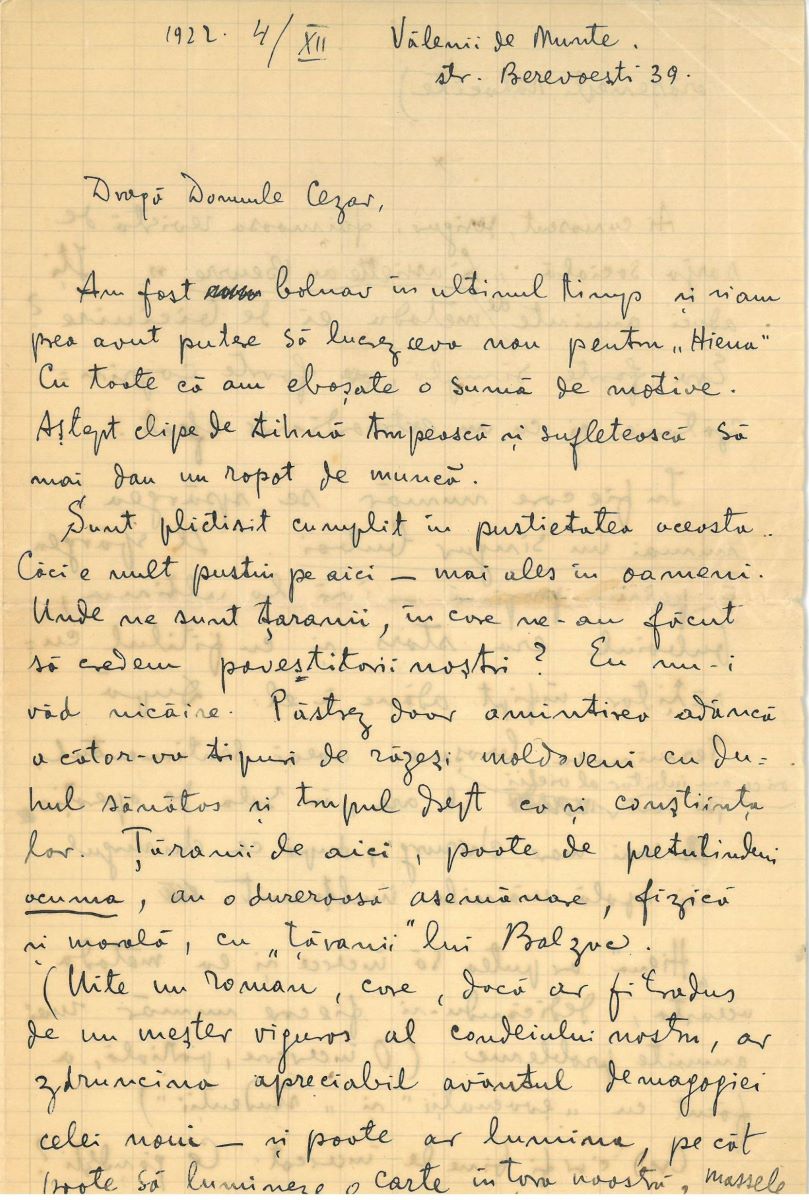 1922. 4/XII Vălenii de Munte.
str. Berevoești 39.
Dragă Domnule Cezar,
Am fost bolnav în ultimul timp și n'am
prea avut putere să lucrez ceva nou pentru „Hiena"
Cu toate că am eboșate o sumă de motive.
Aștept clipe de tihnă trupească și sufletească să
mai dau un ropot de muncă.
Sunt plictisit cumplit în pustietatea aceasta..
Căci e mult pustiu pe aici – mai ales în oameni.
Unde ne sunt țăranii, în care ne-au făcut
să credem povestitorii noștri? Eu nu-i
văd nicăire. Păstrez doar amintirea adâncă
a câtor-va tipuri de răzeși moldoveni cu du=
hul sănătos și trupul drept ca și conștiința
lor. Țăranii de aici, poate de pretutindeni
acuma, au o dureroasă asemănare, fizică
și morală, cu „țăranii" lui Balzac.
(Uite un roman, care, dacă ar fi tradus
de un meșter viguros al condeiului nostru, ar
zdruncina apreciabil avântul demagogiei
celei noui – și poate ar lumina, pe cât
poate să lumineze o carte în țara noastră, massele